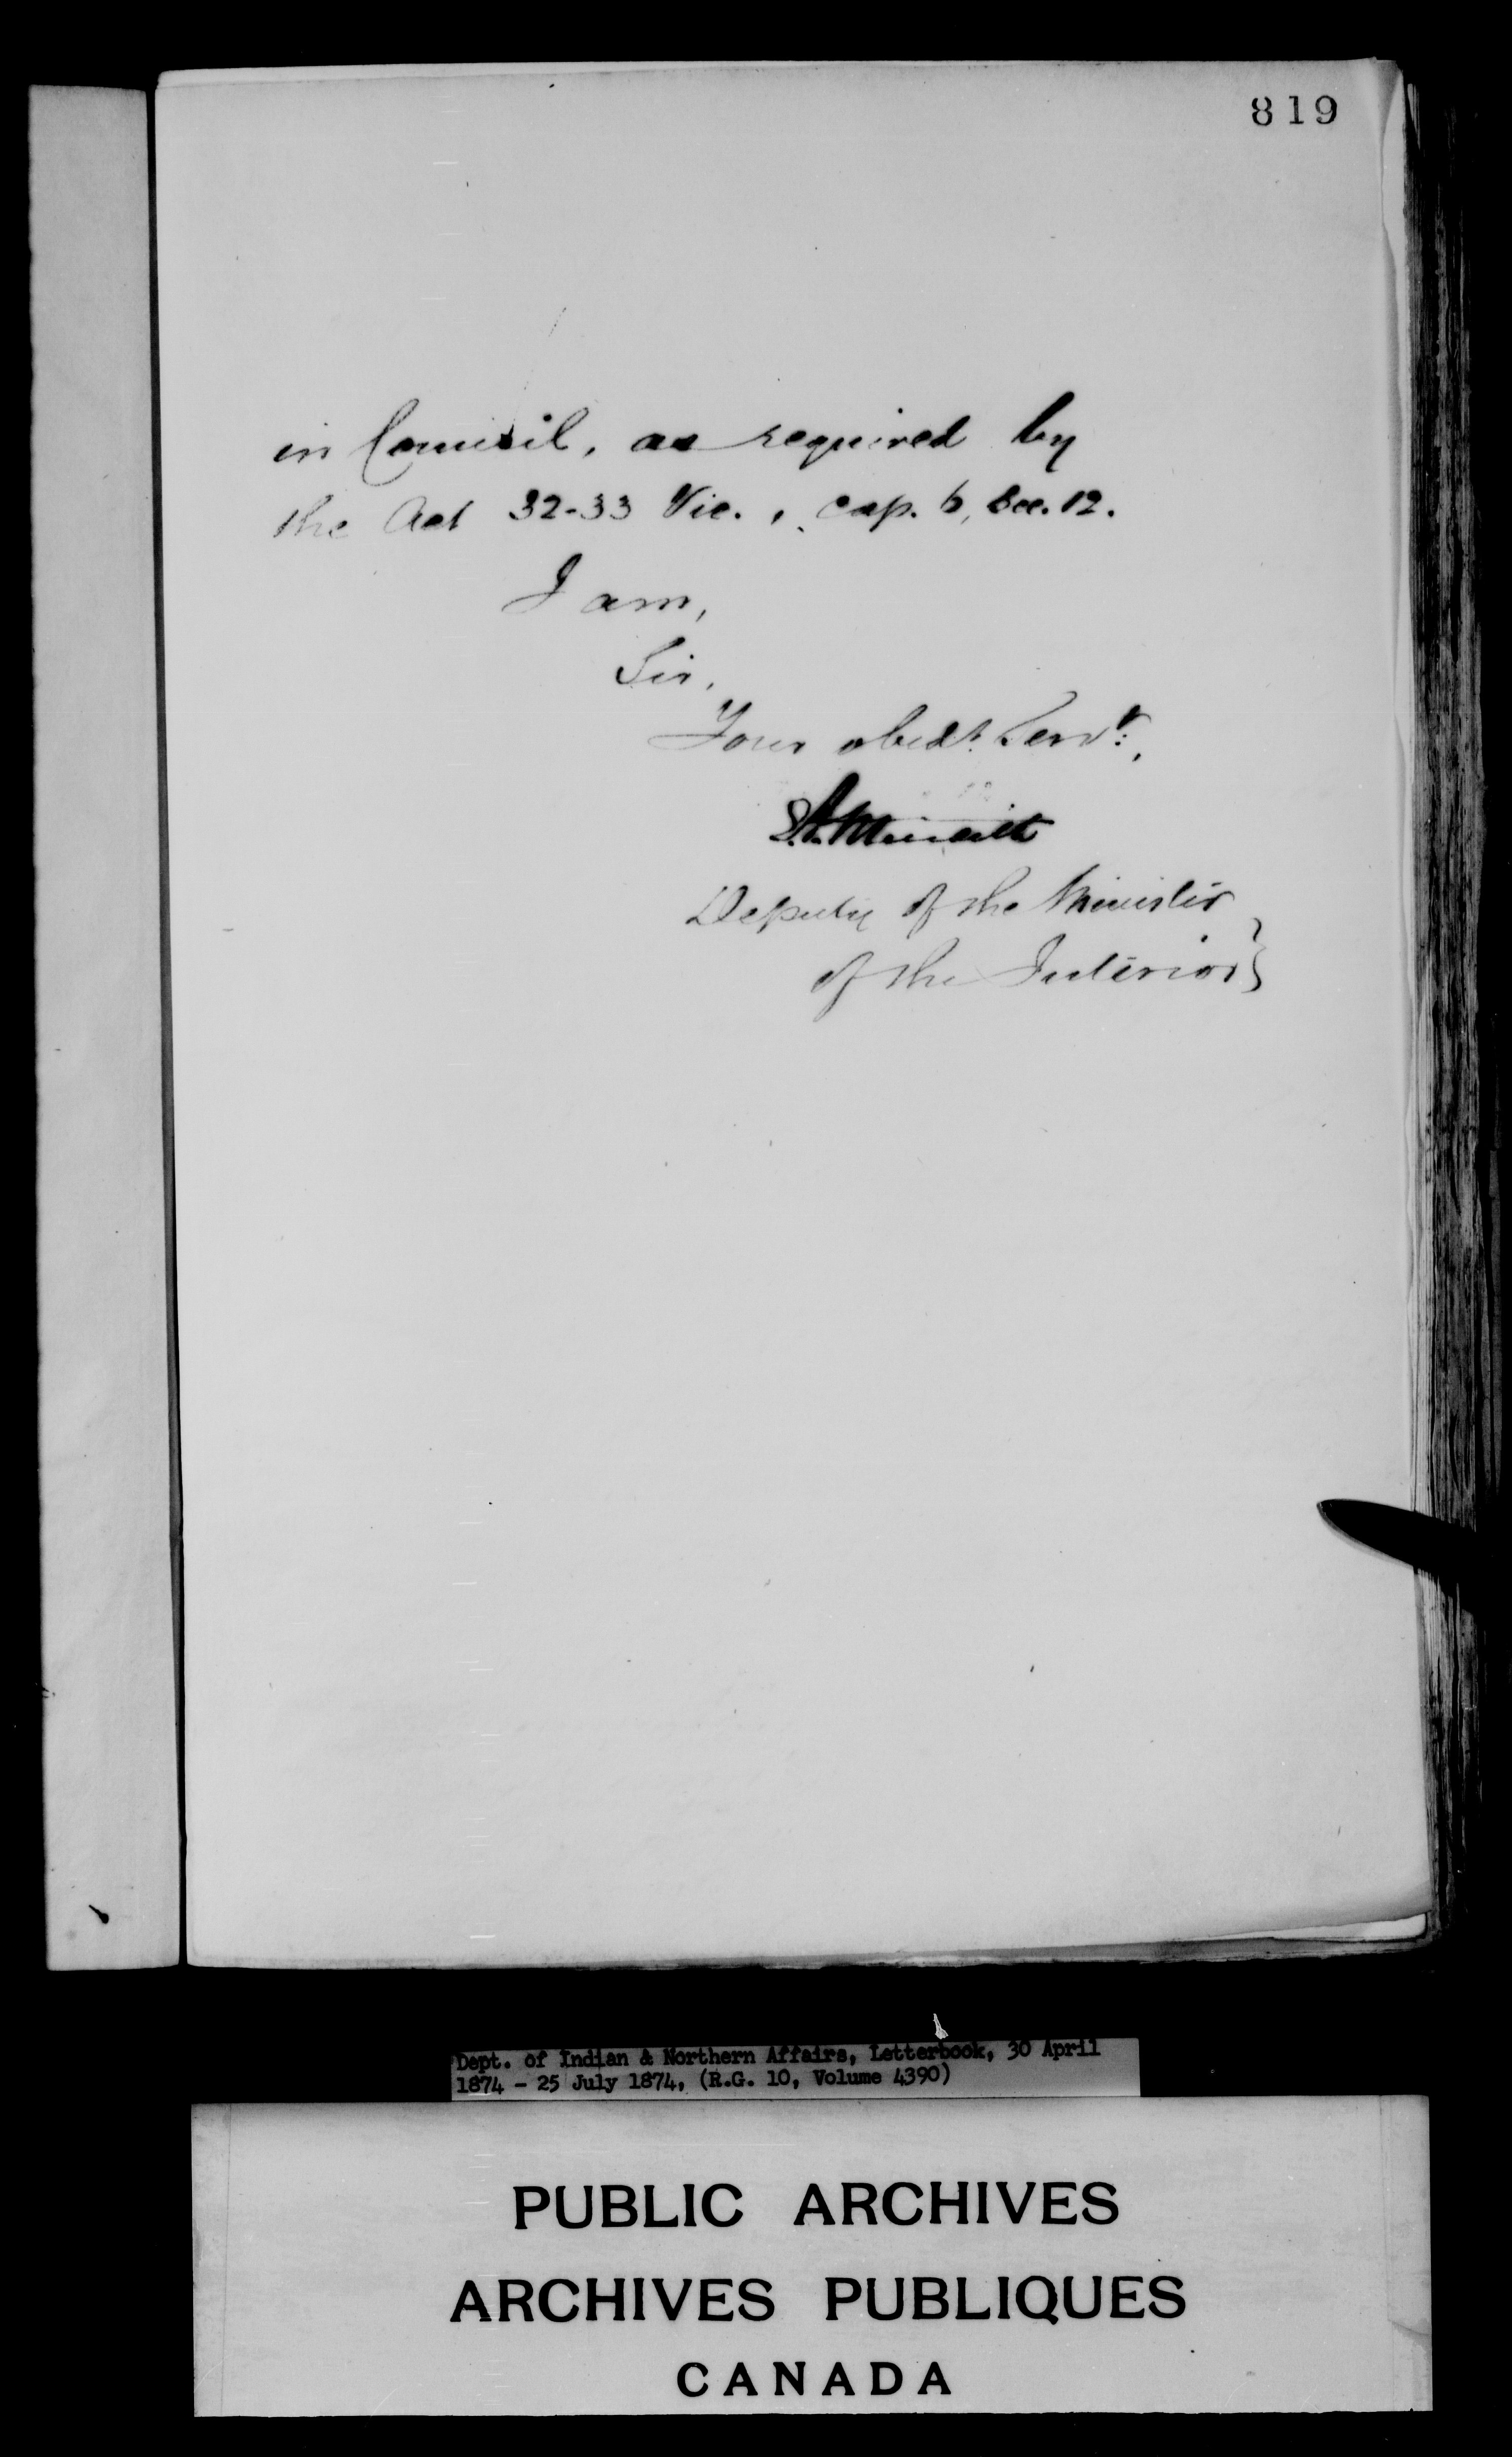 819
in Council, as required by
the Act 32-33 Vic., cap. 6, Sec. 12.
I am,
Sir,
Your obedt. Servt.,
Deputy of the Minister
of the Interior}
Dept. of Indian & Northern Affairs, Letterbook, 30 April
1874 - 25 July 1874, (R.G. 10, Volume 4390)
PUBLIC ARCHIVES
ARCHIVES PUBLIQUES
CANADA